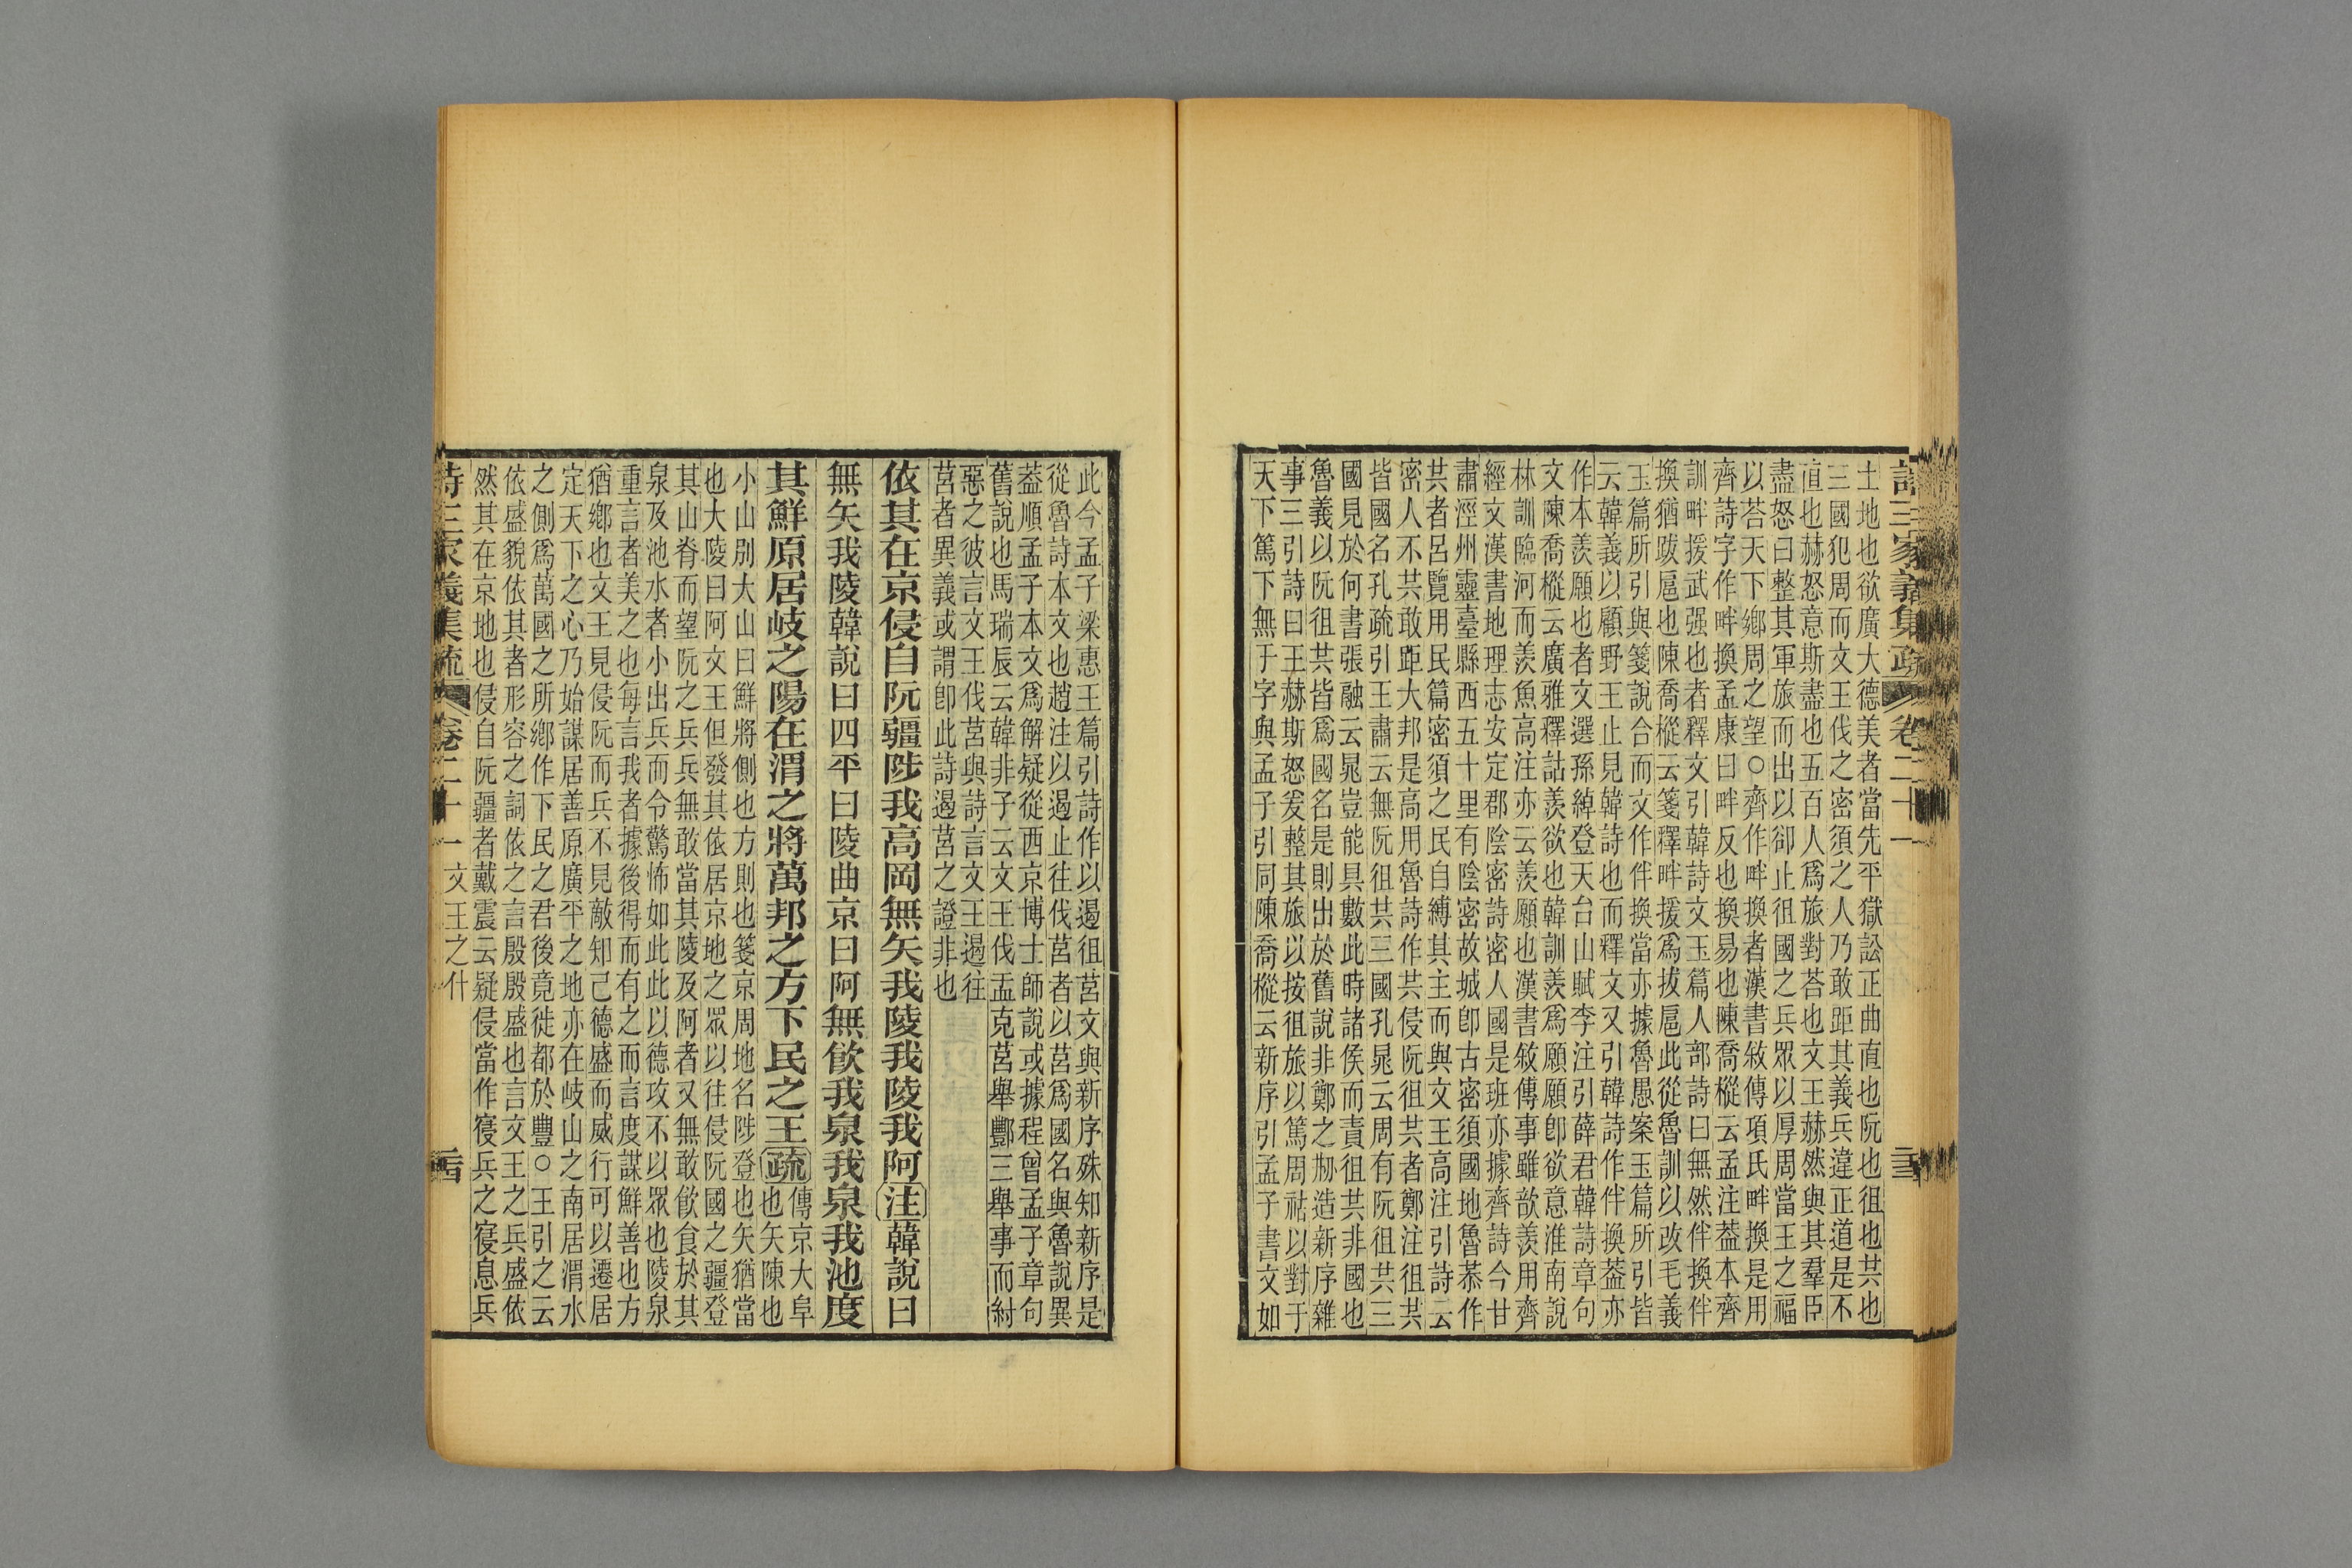 詩三家義集疏 卷二十一 二十三
土地也欲廣大德美者當先平獄訟正曲直也阮也徂也共也
三國犯周而文王伐之密須之人乃敢距其義兵違正道是不
直也赫怒意斯盡也五百人爲旅對荅也文王赫然與其羣臣
盡怒曰整其軍旅而出以卻止徂國之兵眾以厚周當王之福
以荅天下鄉周之望○齊作畔換者漢書敘傳項氏畔換是用
齊詩字作畔換孟康曰畔反也換易也陳喬樅云孟注葢本齊
訓畔援武强也者釋文引韓詩文玉篇人部詩曰無然伴換伴
換猶跋扈也陳喬樅云箋釋畔援爲拔扈此從魯訓以改毛義
玉篇所引與箋說合而文作伴換當亦據魯愚案玉篇所引皆
云韓義以顧野王止見韓詩也而釋文又引韓詩作伴換葢亦
作本羨願也者文選孫綽登天台山賦李注引薛君韓詩章句
文陳喬樅云廣雅釋詁羨欲也韓訓羨爲願願卽欲意淮南說
林訓臨河而羨魚高注亦云羨願也漢書敘傳事雖歆羨用齊
經文漢書地理志安定郡陰密詩密人國是班亦據齊詩今甘
肅涇州靈臺縣西五十里有陰密故城卽古密須國地魯恭作
共者呂覽用民篇密須之民自縛其主而與文王高注引詩云
密人不共敢距大邦是高用魯詩作共侵阮徂共者鄭注徂共
皆國名孔疏引王肅云無阮徂共三國孔晁云周有阮徂共三
國見於何書張融云晁豈能具數此時諸侯而責徂共非國也
魯義以阮徂共皆爲國名是則出於舊說非鄭之刱造新序雜
事三引詩曰王赫斯怒爰整其旅以按徂旅以篤周祜以對于
天下篤下無于字與孟子引同陳喬樅云新序引孟子書文如
此今孟子梁惠王篇引詩作以遏徂莒文與新序殊知新序是
從魯詩本文也趙注以遏止往伐莒者以莒爲國名與魯說異
葢順孟子本文爲解疑從西京博士師說或據程曾孟子章句
舊說也馬瑞辰云韓非子云文王伐盂克莒舉酆三舉事而紂
惡之彼言文王伐莒與詩言文王遏往
莒者異義或謂卽此詩遏莒之證非也
依其在京侵自阮疆陟我高岡無矢我陵我陵我阿注韓說曰
無矢我陵韓說曰四平曰陵曲京曰阿無飮我泉我泉我池度
其鮮原居岐之陽在渭之將萬邦之方下民之王疏傳京大阜
也矢陳也
小山別大山曰鮮將側也方則也箋京周地名陟登也矢猶當
也大陵曰阿文王但發其依居京地之眾以往侵阮國之疆登
其山脊而望阮之兵兵無敢當其陵及阿者又無敢飮食於其
泉及池水者小出兵而令驚怖如此此以德攻不以眾也陵泉
重言者美之也每言我者據後得而有之而言度謀鮮善也方
猶鄉也文王見侵阮而兵不見敵知己德盛而威行可以遷居
定天下之心乃始謀居善原廣平之地亦在岐山之南居渭水
之側爲萬國之所鄉作下民之君後竟徙都於豐○王引之云
依盛貌依其者形容之詞依之言殷殷盛也言文王之兵盛依
然其在京地也侵自阮疆者戴震云疑侵當作寑兵之寑息兵
詩三家義集疏 卷二十一 文王之什 二十四